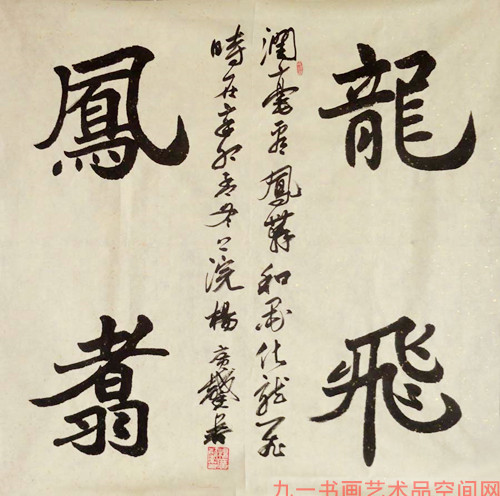 龍飛
潤毫鳳舞和墨化龍飛
時在辛卯浣楊書
鳳翥
九一书画艺术品空间网